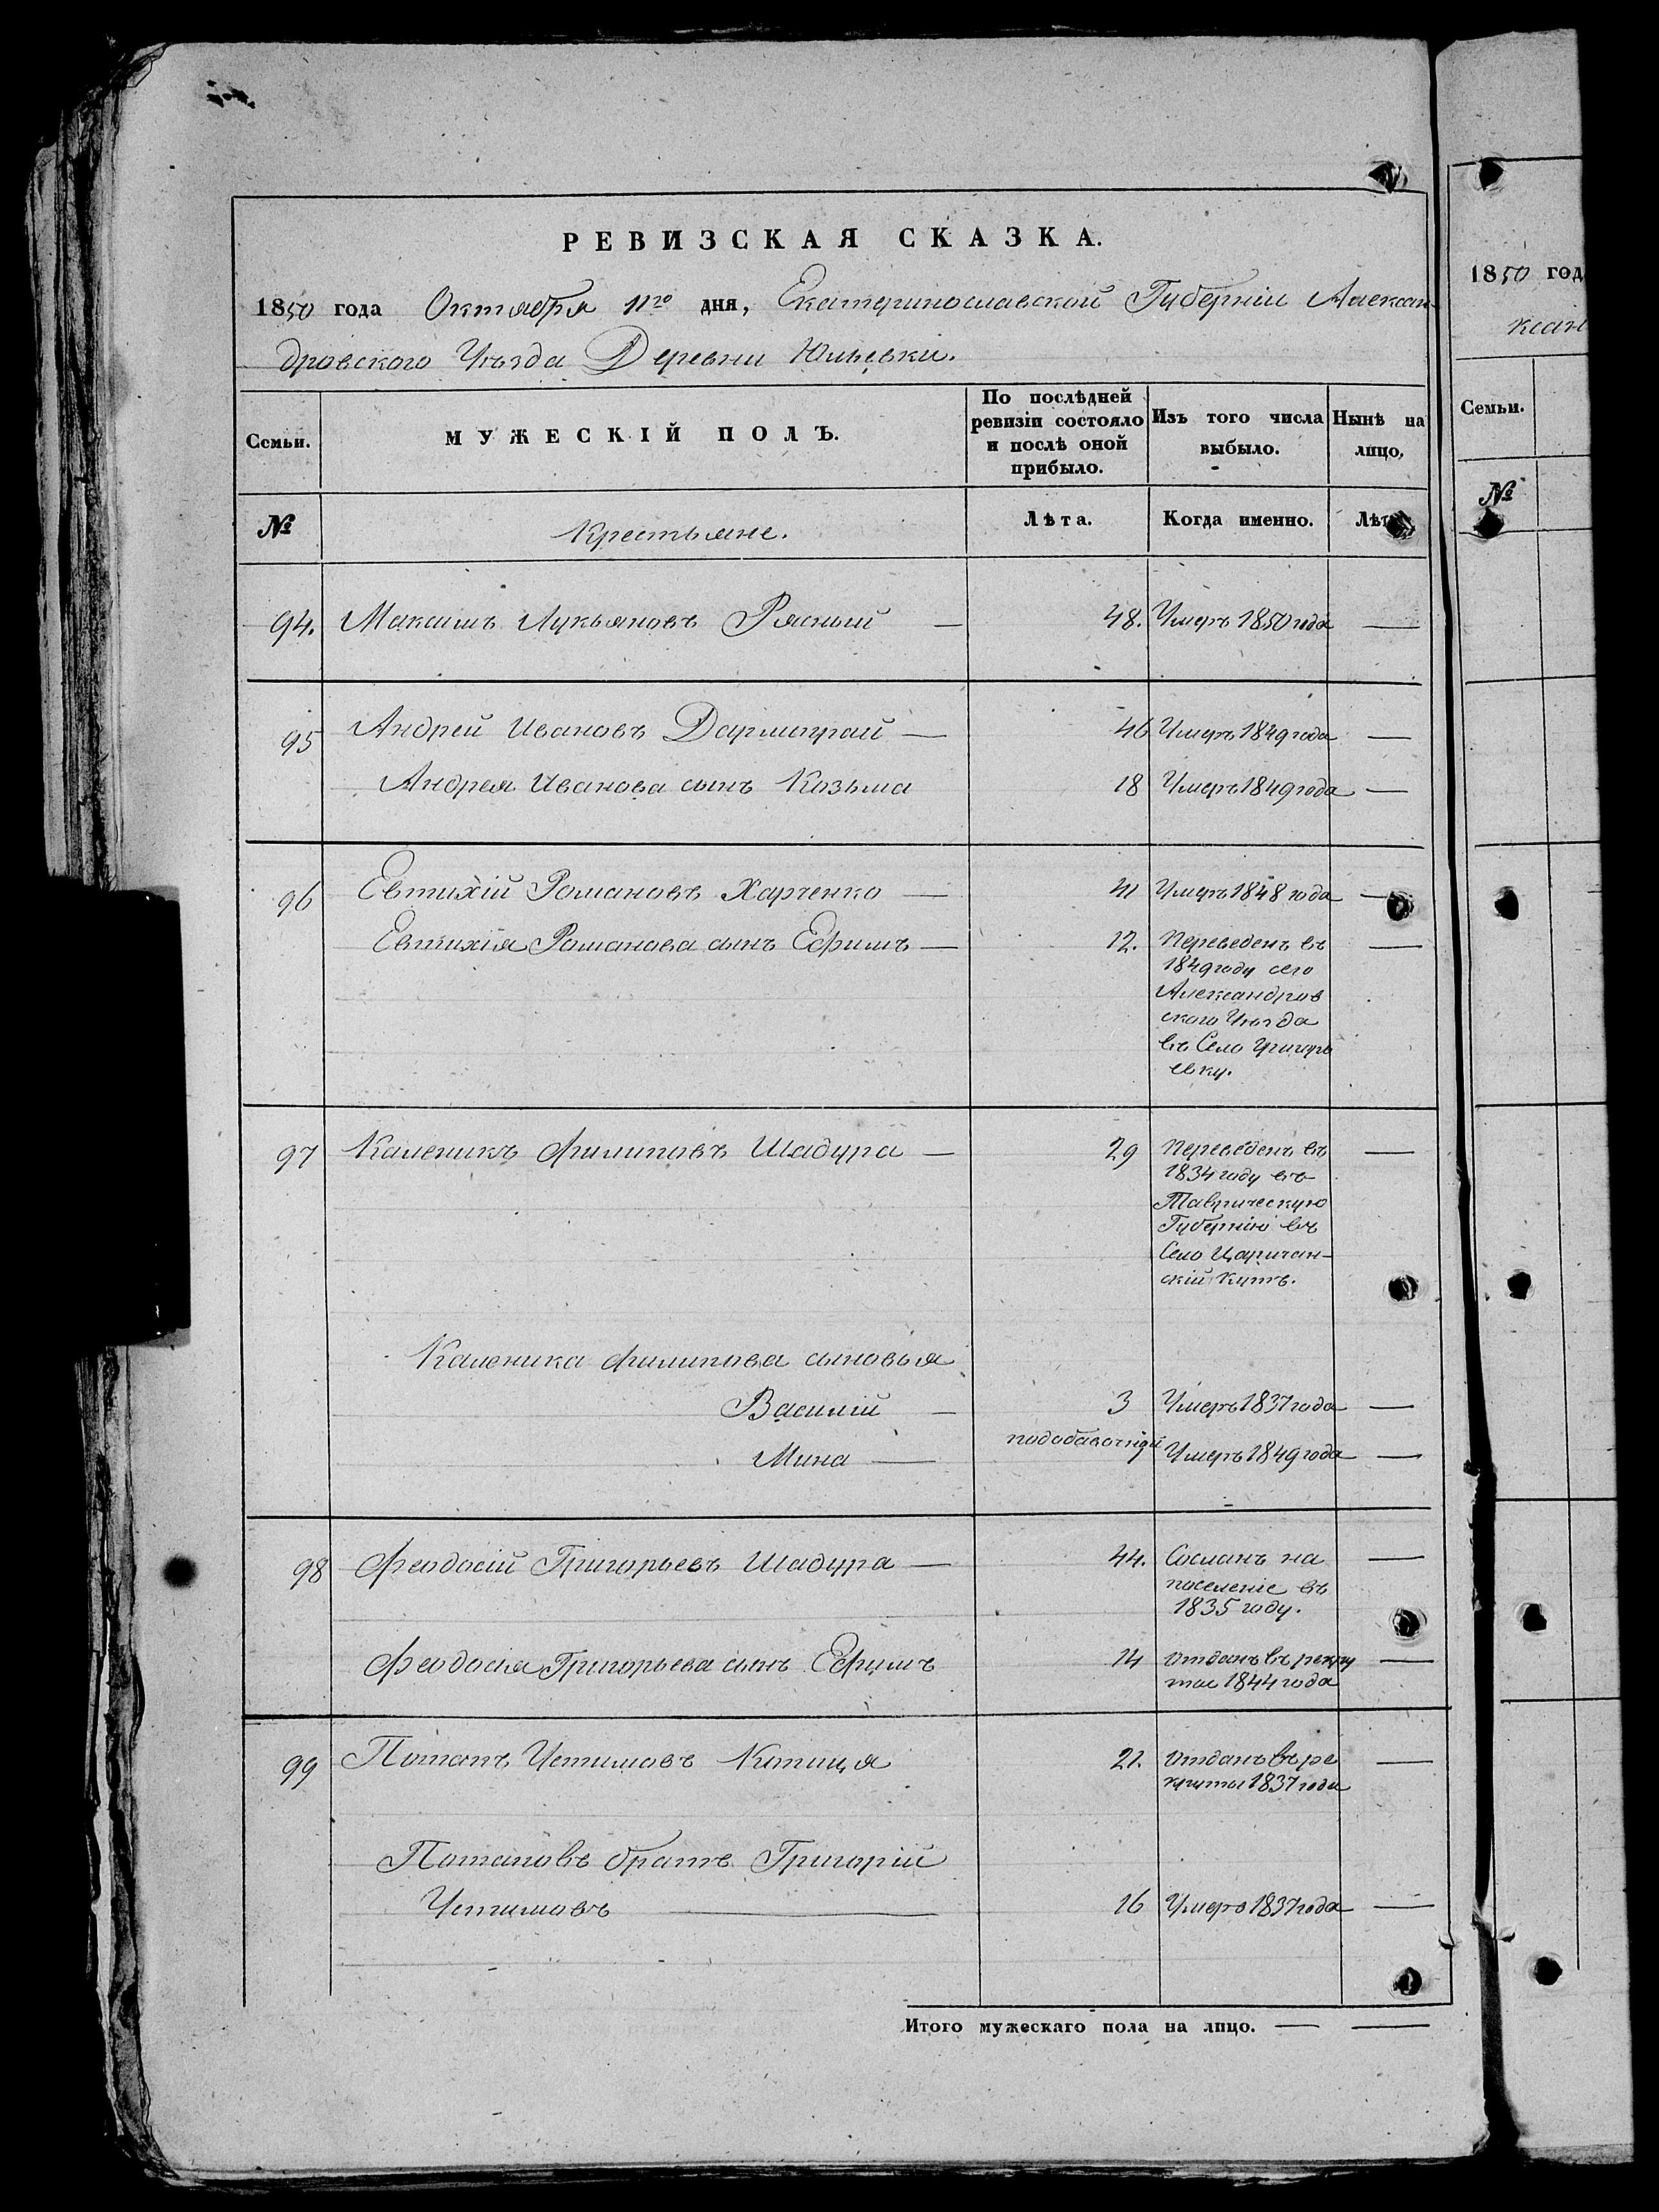 РЕВИЗСКАЯ СКАЗКА.
1850 года Октября 11го дня, Екатеринославской Губерніи Алексан-
дровского Уѣзда Деревни Юльевки.
Семьи.
МУЖЕСКІЙ ПОЛЪ.
По послѣдней
ревизіи состояло
и послѣ оной
прибыло.
Изъ того числа
выбыло.
Нынѣ на
лицо,
№
Крестьяне.
Лѣта.
Когда именно.
Лѣт
94. Максимъ Лукьяновъ Рясный — 48. Умеръ 1850 года —
95 Андрей Ивановъ — 46 Умеръ 1849 года —
Андрея Иванова сынъ Козьма 18 Умеръ 1849 года —
96 Евтихій Романовъ Харченко — Умеръ 1848 года —
Евтихія Романова сынъ Ефимъ — 12. Переведенъ въ —
1849 году сего
Александров
ского Уѣзда
въ Село Григорь
евку.
97 Каленикъ Филиповъ Шадура — 29 Переведенъ въ —
1834 году въ
Таврическую
Губернію въ
Село Царичан-
скій Кутъ.
Каленика Филипова сыновья
Василій — 3 Умеръ 1837 года —
Мина — Умеръ 1849 года —
98 Феодосій Григорьевъ Шадура — 44. Сосланъ на —
поселеніе въ
1835 году.
Феодосія Григорьева сынъ Ефимъ 14 отданъ въ рекру —
ты 1844 года
99 Потапъ Устимовъ Котиця 21. отданъ въ ре —
круты 1837 года
Потаповъ братъ Григорій
Устимовъ — 16 Умеръ 1837 года —
Итого мужескаго пола на лицо. — —
1850 год
ксан
Семьи.
№